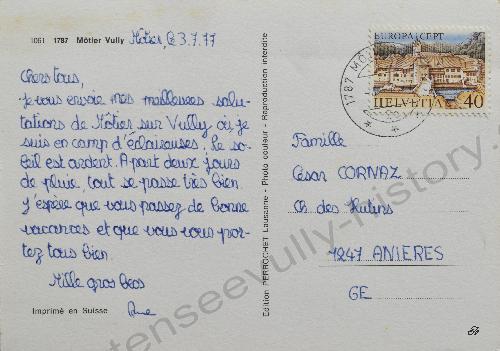 1061 1787 Môtier Vully Môtier, le 3.7.77
Chers tous,
je vous envoie mes meilleures salu-
tations de Môtier sur Vully où je
suis en camp d'éclaireuses. Le so-
leil est ardent. A part deux jours
de pluie, tout se passe très bien.
J'espère que vous passez de bonne
vacances et que vous vous por-
tez tous bien.
Mille gros becs
Imprimé en Suisse
Edition PERROCHET Lausanne - Photo couleur - Reproduction interdite
EUROPA CEPT
HELVETIA 40
1787 MÔ
Famille
César CORNAZ
Ch. des Hutins
1247 ANIERES
GE
tenseevully-history.